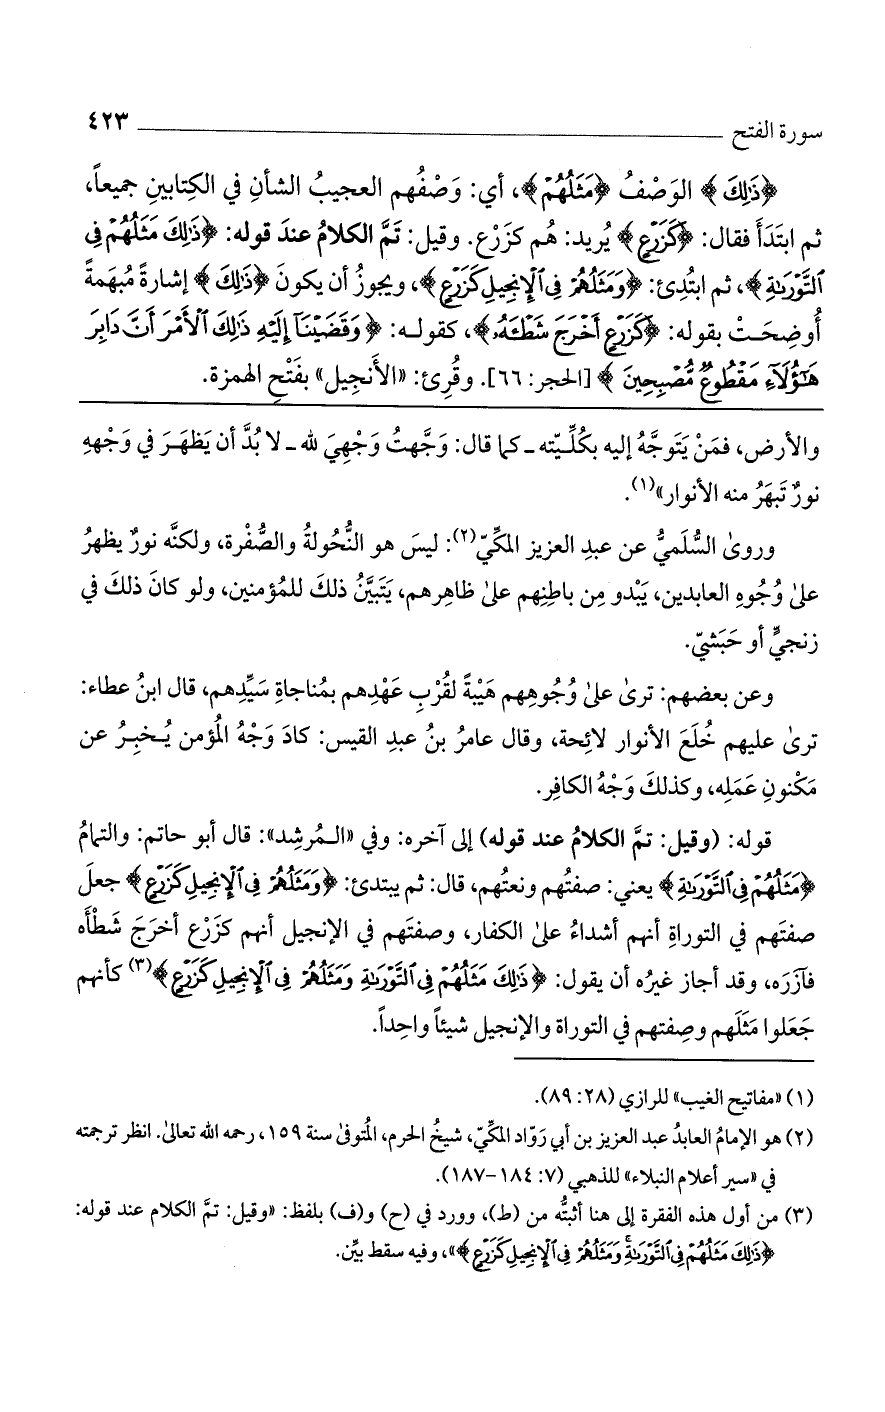 سورة الفتح ٤٢٣
﴿ذَٰلِكَ﴾ الوَصْفُ ﴿مَثَلُهُمْ﴾، أي: وَصْفُهم العجيبُ الشأنِ في الكِتابينِ جميعاً،
ثم ابتَدَأَ فقال: ﴿كَزَرْعٍ﴾ يُريد: هُم كزَرْع. وقيل: تَمَّ الكلامُ عندَ قوله: ﴿ذَٰلِكَ مَثَلُهُمْ فِي
التَّوْرَىٰةِ﴾، ثم ابتُدِئ: ﴿وَمَثَلُهُمْ فِي الْإِنجِيلِ كَزَرْعٍ﴾، ويجوزُ أن يكونَ ﴿ذَٰلِكَ﴾ إشارةً مُبهَمةً
أُوضِحَتْ بقوله: ﴿كَزَرْعٍ أَخْرَجَ شَطْـَٔهُۥ﴾، كقولـه: ﴿وَقَضَيْنَآ إِلَيْهِ ذَٰلِكَ ٱلْأَمْرَ أَنَّ دَابِرَ
هَٰٓؤُلَآءِ مَقْطُوعٌ مُّصْبِحِينَ﴾ [الحجر: ٦٦]. وقُرِئ: «الأَنجيل» بفَتْحِ الهمزة.
والأرض، فمَنْ يَتَوجَّهُ إليه بكُلِّـيّته ـ كما قال: وَجَّهتُ وَجْهِيَ لله ـ لا بُدَّ أن يَظهَـرَ في وَجْههِ
نورٌ تَبهَرُ منه الأنوار»(١).
وروىٰ السُّلَميُّ عن عبدِ العزيز المكِّيّ(٢): ليسَ هو النُّحُولةُ والصُّفْرة، ولكنَّه نورٌ يظهرُ
علىٰ وُجُوهِ العابدين، يَبْدو مِن باطِنِهم علىٰ ظاهِرهم، يَتَبيَّنُ ذلكَ للمُؤمنين، ولو كانَ ذلكَ في
زنجيٍّ أو حَبَشيّ.
وعن بعضهم: ترىٰ علىٰ وُجُوهِهم هَيْبةً لقُربِ عَهْدِهم بمُناجاةِ سَيِّدِهم، قال ابنُ عطاء:
ترىٰ عليهم خُلَعَ الأنوار لائِحة، وقال عامرُ بنُ عبدِ القيس: كادَ وَجْهُ المُؤمن يُـخبِـرُ عن
مَكْنونِ عَمَلِه، وكذلكَ وَجْهُ الكافِر.
قوله: (وقيل: تمَّ الكلامُ عند قوله) إلى آخره: وفي «الـمُرشِد»: قال أبو حاتم: والتمامُ
﴿مَثَلُهُمْ فِي التَّوْرَىٰةِ﴾ يعني: صفتُهم ونعتُهم، قال: ثم يبتدئ: ﴿وَمَثَلُهُمْ فِي الْإِنجِيلِ كَزَرْعٍ﴾ جعلَ
صفتَهم في التوراةِ أنهم أشداءُ علىٰ الكفار، وصفتَهم في الإنجيل أنهم كزَرْع أخرَجَ شَطْأَه
فآزَرَه، وقد أجاز غيرُه أن يقول: ﴿ذَٰلِكَ مَثَلُهُمْ فِي التَّوْرَىٰةِ وَمَثَلُهُمْ فِي الْإِنجِيلِ كَزَرْعٍ﴾(٣) كأنهم
جَعَلوا مَثَلَهم وصِفتهم في التوراة والإنجيل شيئاً واحِداً.
(١) «مفاتيح الغيب» للرازي (٢٨: ٨٩).
(٢) هو الإمامُ العابدُ عبد العزيز بن أبي رَوّاد المكِّيّ، شيخُ الحرم، المُتوفىٰ سنة ١٥٩، رحمه الله تعالىٰ. انظر ترجمته
في «سير أعلام النبلاء» للذهبي (٧: ١٨٤-١٨٧).
(٣) من أول هذه الفقرة إلى هنا أثبتُّه من (ط)، وورد في (ح) و(ف) بلفظ: «وقيل: تمَّ الكلام عند قوله:
﴿ذَٰلِكَ مَثَلُهُمْ فِي التَّوْرَىٰةِ وَمَثَلُهُمْ فِي الْإِنجِيلِ كَزَرْعٍ﴾»، وفيه سقط بيِّن.